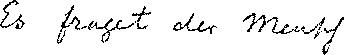 Es fraget der Mensch